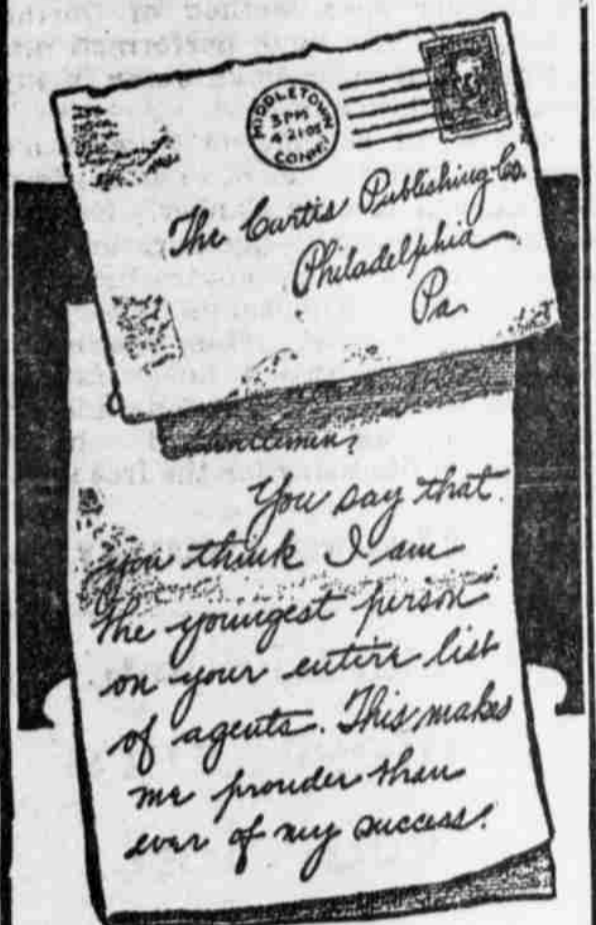 MIDDLETOWN
3 PM
4 21 08
CONN.
The Curtis Publishing Co.
Philadelphia
Pa.
Gentlemen:
You say that
you think I am
the youngest person
on your entire list
of agents. This makes
me prouder than
ever of my success.